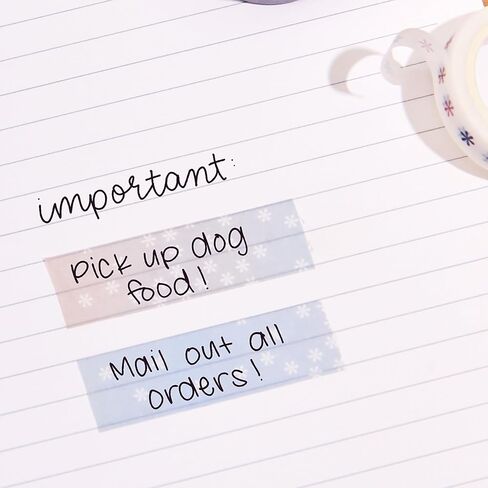 important:
pick up dog
food!
Mail out all
orders!